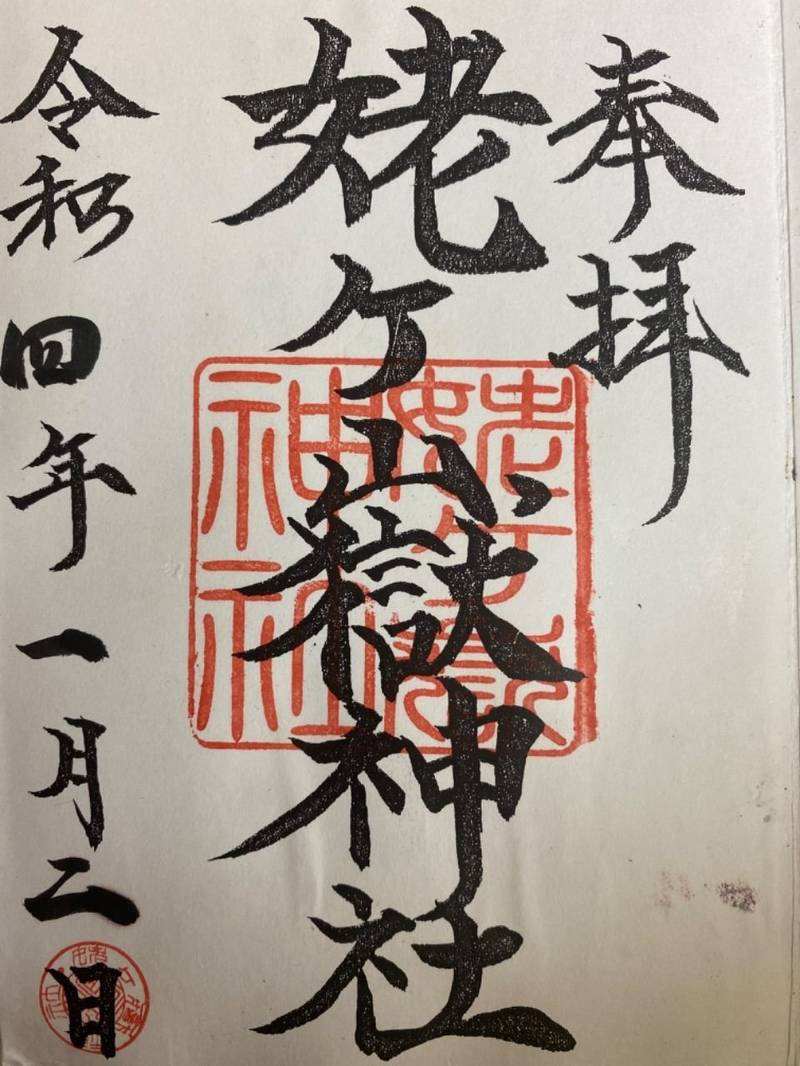 奉拝
姥ヶ嶽神社
姥ヶ嶽
神社
令和四年一月二日